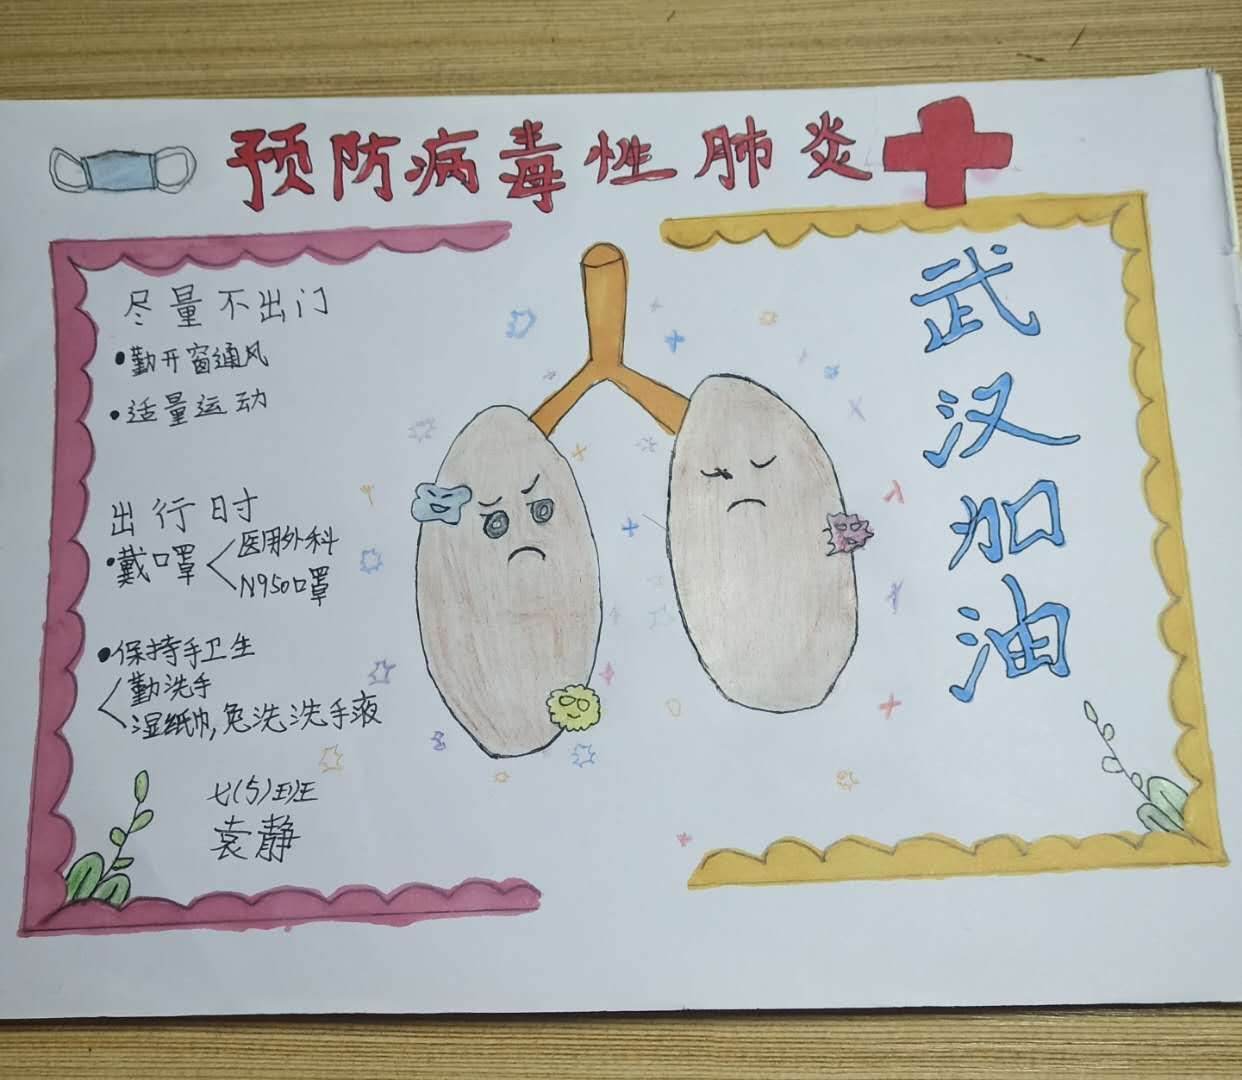 预防病毒性肺炎
尽量不出门
•勤开窗通风
•适量运动
出行时
•戴口罩
医用外科
N95口罩
•保持手卫生
勤洗手
湿纸巾,免洗洗手液
七(5)班
袁静
武
汉
加
油